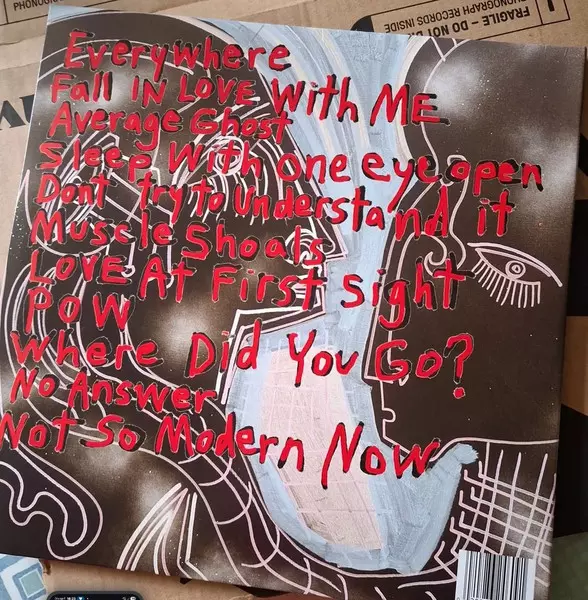 PHONOGRAPH RECORDS INSIDE
Everywhere
Fall IN LOVE With ME
Average Ghost
Sleep With one eye open
Dont try to Understand it
Muscle Shoals
LOVE At First Sight
POW
Where Did You Go?
No Answer
Not So Modern Now